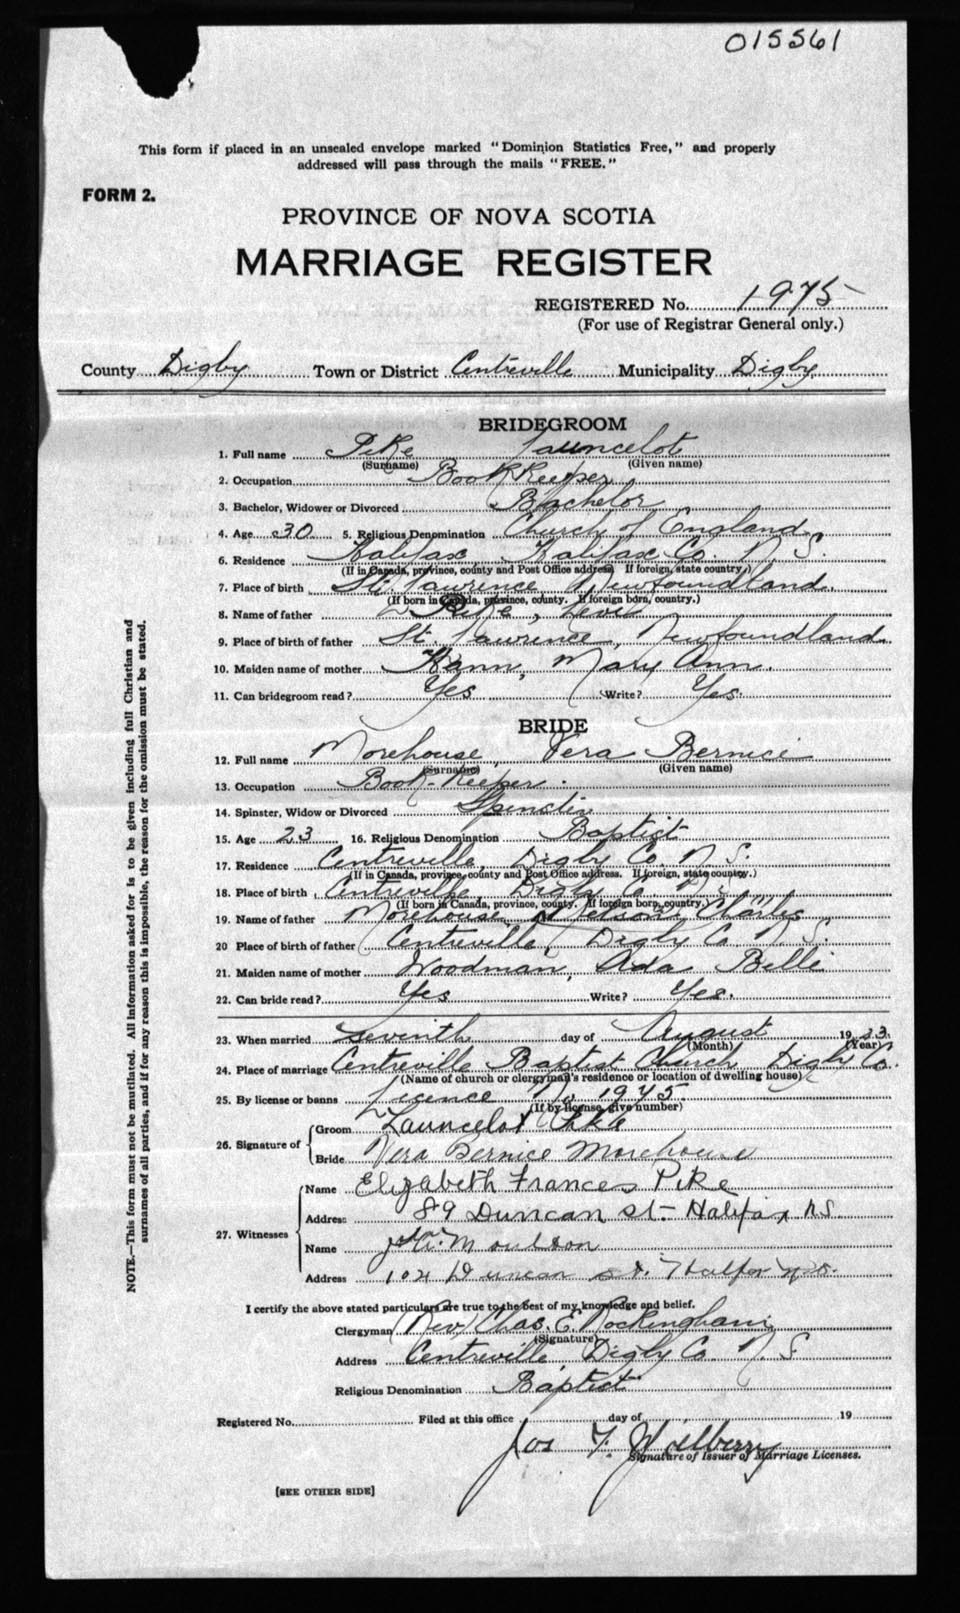 015561
This form if placed in an unsealed envelope marked "Dominion Statistics Free," and properly
addressed will pass through the mails "FREE."
FORM 2.
PROVINCE OF NOVA SCOTIA
MARRIAGE REGISTER
REGISTERED No. 1975
(For use of Registrar General only.)
County Digby Town or District Centreville Municipality Digby
BRIDEGROOM
1. Full name Pike Launcelot
(Surname) (Given name)
2. Occupation Book Keeper
3. Bachelor, Widower or Divorced Bachelor
4. Age 30 5. Religious Denomination Church of England
6. Residence Halifax Halifax Co. N. S.
(If in Canada, province, county and Post Office address. If foreign, state country.)
7. Place of birth St. Lawrence, Newfoundland.
(If born in Canada, province, county. If foreign born, country.)
8. Name of father Pike, Levi
9. Place of birth of father St. Lawrence, Newfoundland.
10. Maiden name of mother Hann, Mary Ann.
11. Can bridegroom read? Yes Write? Yes.
BRIDE
12. Full name Morehouse, Vera Bernice
(Surname) (Given name)
13. Occupation Book-Keeper.
14. Spinster, Widow or Divorced Spinster
15. Age 23 16. Religious Denomination Baptist
17. Residence Centreville, Digby Co. N. S.
(If in Canada, province, county and Post Office address. If foreign, state country.)
18. Place of birth Centreville Digby Co N. S.
(If born in Canada, province, county. If foreign born, country.)
19. Name of father Morehouse, Nelson, Charles
20 Place of birth of father Centreville, Digby Co. N. S.
21. Maiden name of mother Woodman, Ada Belle
22. Can bride read? Yes Write? Yes.
23. When married Seventh day of August 1923.
(Month) (Year)
24. Place of marriage Centreville Baptist Church Digby Co.
(Name of church or clergyman's residence or location of dwelling house)
25. By license or banns Licence No 1975.
(If by license, give number)
26. Signature of Groom Launcelot Pike
Bride Vera Bernice Morehouse
27. Witnesses Name Elizabeth Frances Pike
Address 89 Duncan St- Halifax N.S.
Name Moulson
Address 102 Duncan St. Halifax N.S.
I certify the above stated particulars are true to the best of my knowledge and belief.
Clergyman (Rev) Chas. E. Rockingham
(Signature)
Address Centreville, Digby Co N. S
Religious Denomination Baptist
Registered No. Filed at this office day of 19
Jos F.
Signature of Issuer of Marriage Licenses.
[SEE OTHER SIDE]
NOTE.—This form must not be mutilated. All information asked for is to be given including full Christian and
surnames of all parties, and if for any reason this is impossible, the reason for the omission must be stated.